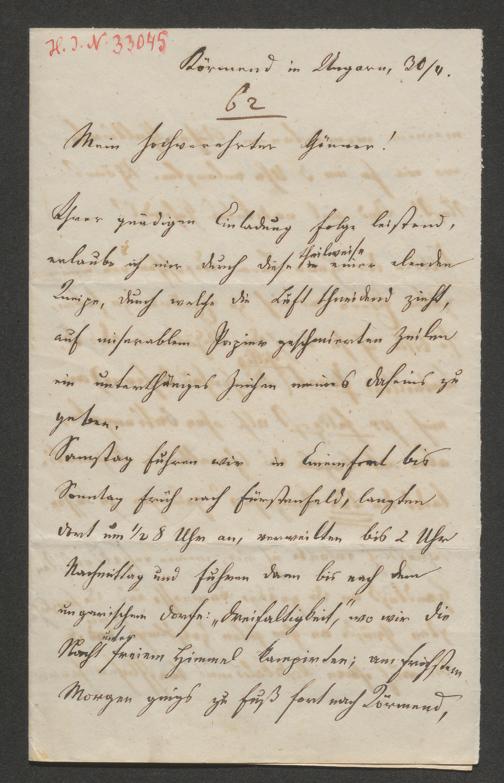 H. I. N. 33045
Körmend in Ungarn, 30/4.
62
Mein hochverehrter Gönner!
Ihrer gnädigen Einladung Folge leistend,
erlaube ich mir durch diese theilweise in einer elenden
Kneipe, durch welche die Luft schneidend zieht,
auf miserablem Papier geschmierten Zeilen
ein unterthäniges Zeichen meines Daseins zu
geben.
Samstag fuhren wir in Einemfort bis
Sonntag früh nach Fürstenfeld, langten
dort um 1/2 8 Uhr an, verweilten bis 2 Uhr
Nachmittag und fuhren dann bis nach dem
ungarischen Dorfe: „Dreifaltigkeit," wo wir die
Nacht unter freiem Himmel kampirten; am frühsten
Morgen gings zu Fuß fort nach Körmend,